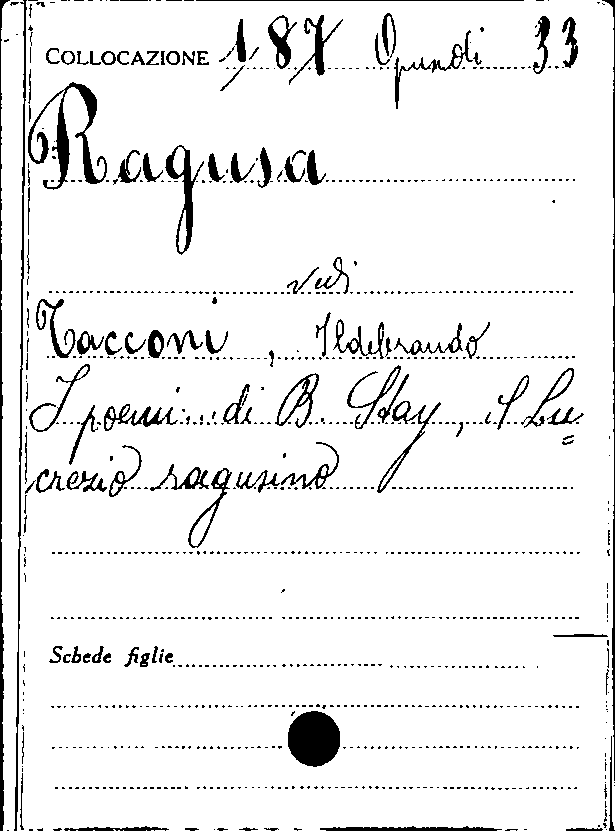 COLLOCAZIONE 187 Opuscoli 33
Ragusa
vedi
Tacconi, Ildebrando
I poemi... di B. Stay, il Lu=
crezio ragusino
Schede figlie